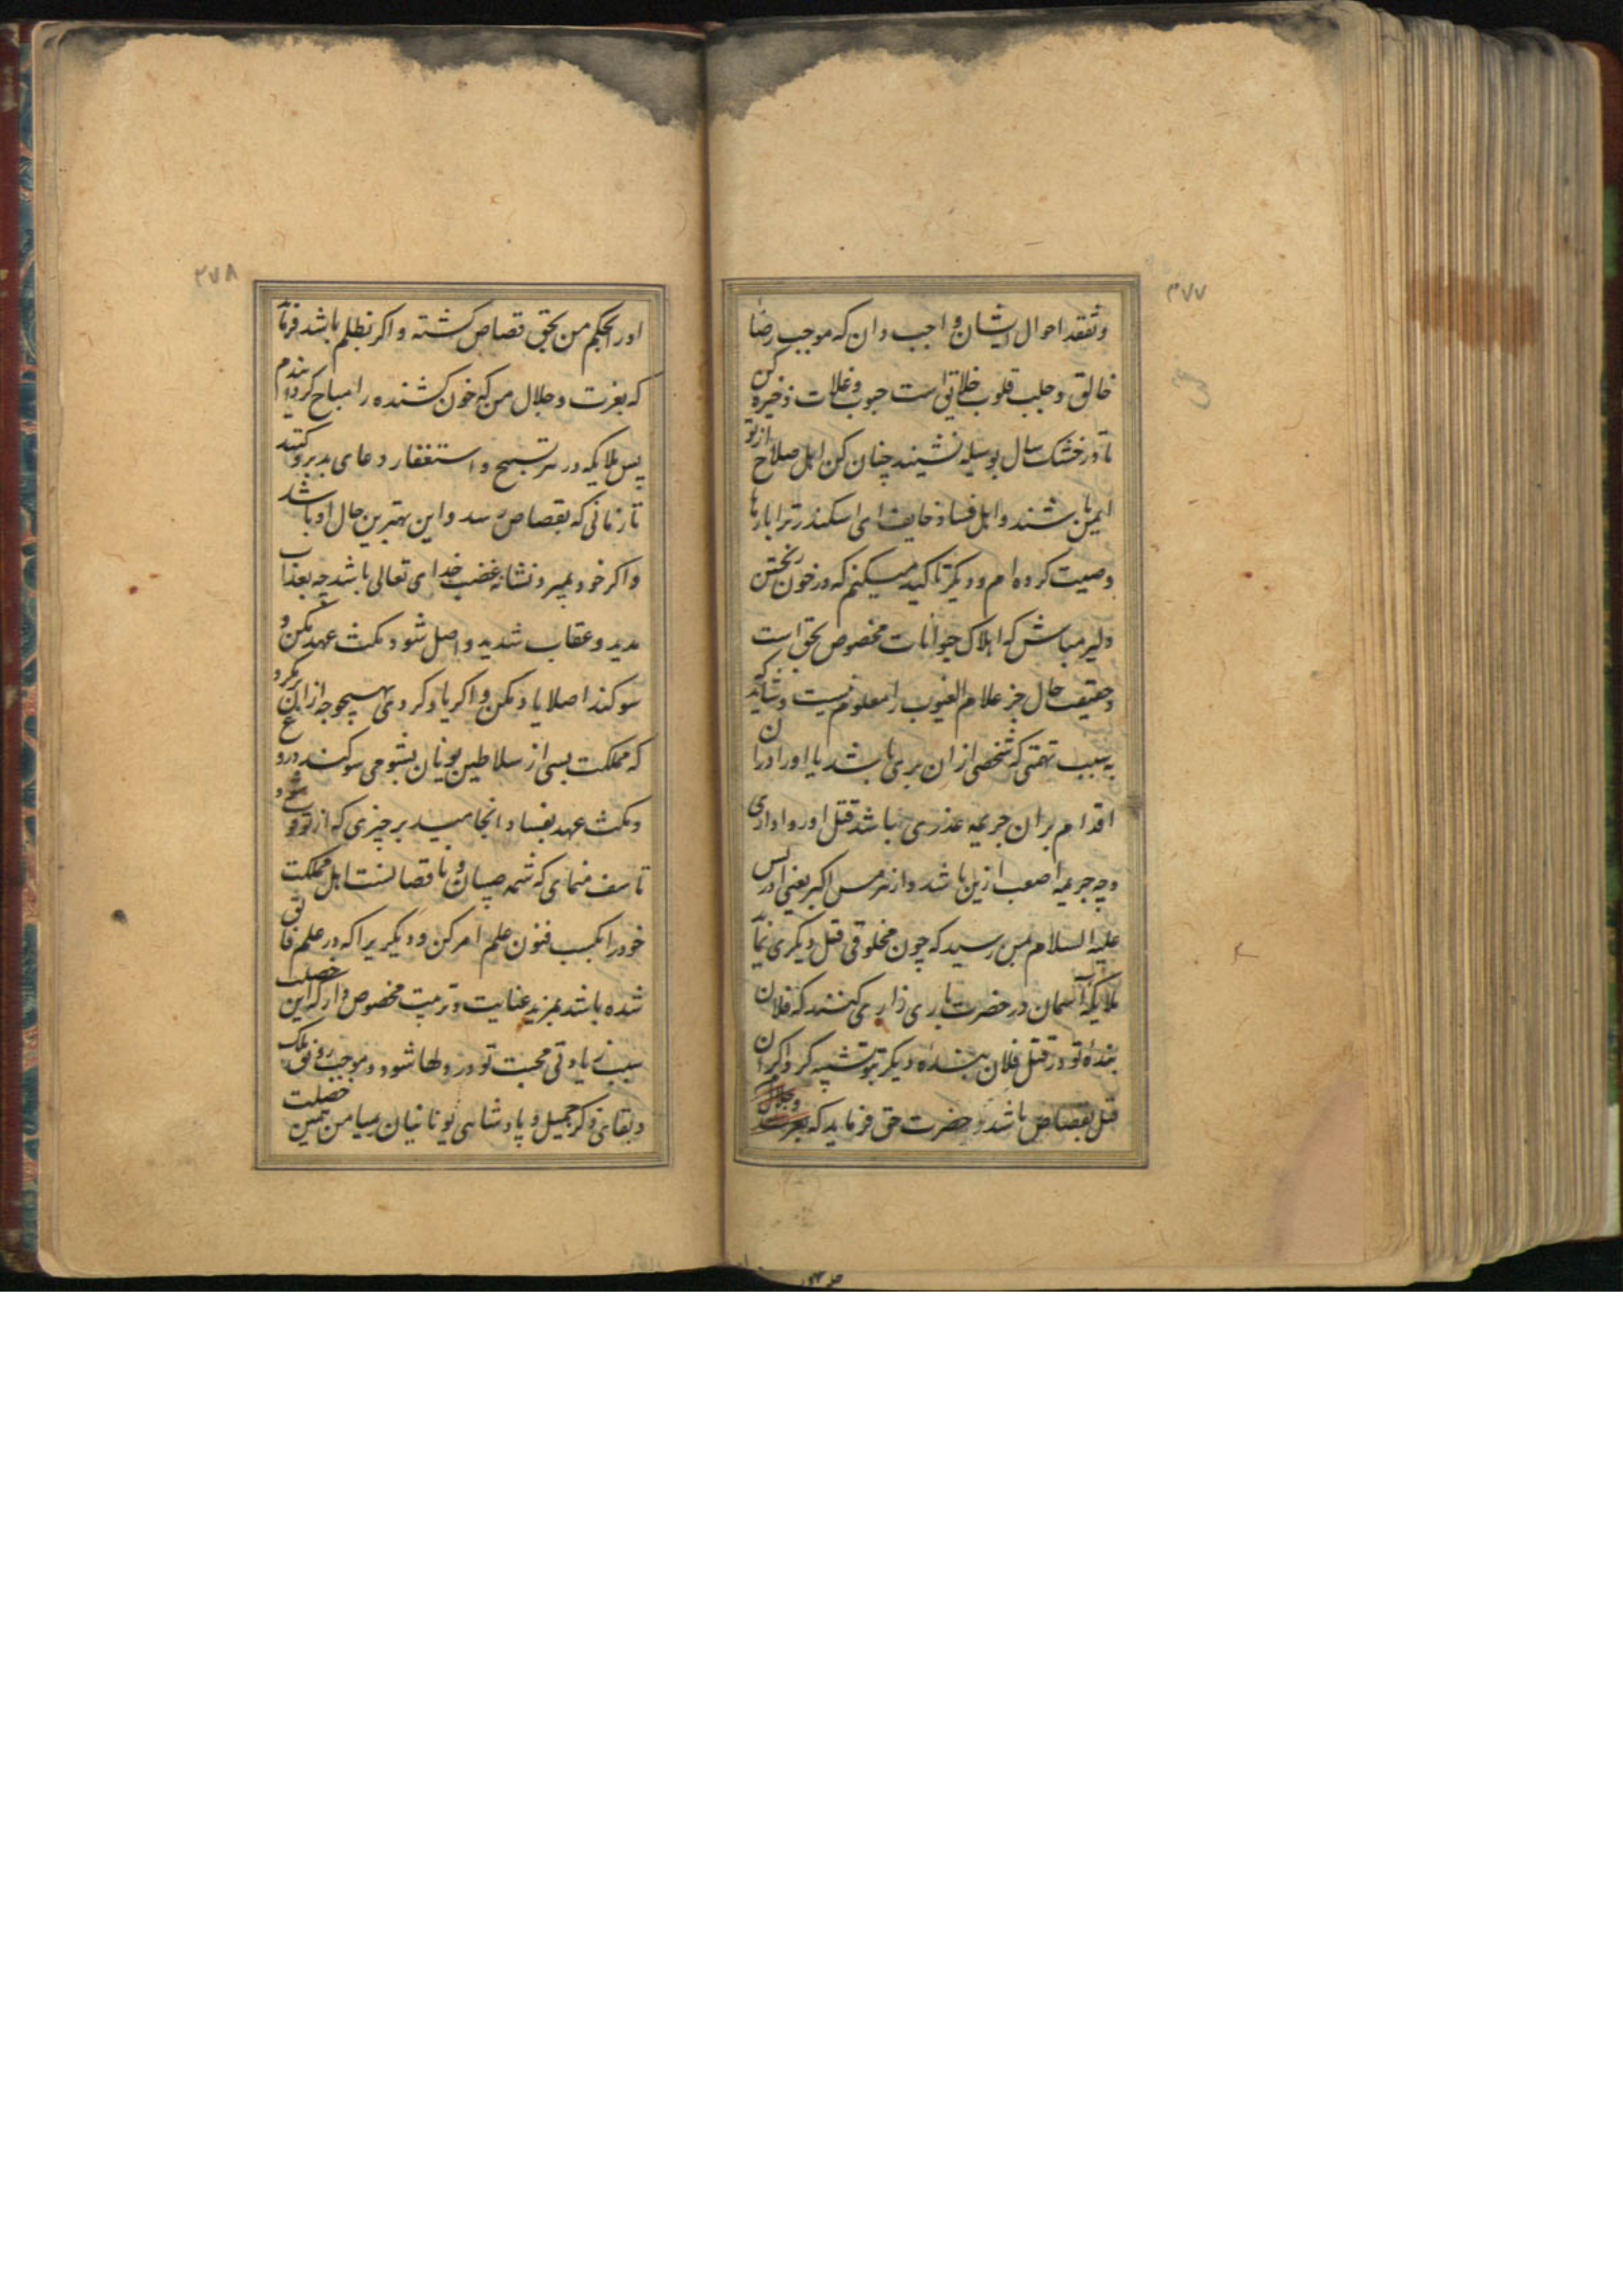 ۳۷۷
وتفقد احوال ایشان واجب دان که موجب رضا
خالق وجلب قلوب خلایق است حبوب وغلات ذخیره کن
تا در خشک سال بوسیله نشیند چنان کن اهل صلاح از تو
ایمن باشند واهل فساد خایف ای اسکندر ترا بارها
وصیت کرده ام ودیکر تاکید میکنم که در خون ریختن
دلیر مباش که اهلاک حیوانات مخصوص بحق است
وحقیقت حال جز علام الغیوب را معلوم نیست وشاید که
به سبب تهمتی که شخصی ازان بری باشد یا اورا دران
اقدام بران جریمه عذری باشد قتل او روا داری
وچه جریمه اصعب ازین باشد واز هرمس اکبر یعنی ادریس
علیه السلام بمن رسید که چون مخلوقی قتل دیکری نماید
ملایکه آسمان در حضرت باری زاری کنند که فلان
بندهٔ تو در قتل فلان بندهٔ دیکر بتو تشبیه کرد واکر ان
قتل بقصاص باشد حضرت حق فرماید که بعزت وجلال
۲۷۸
اورا بحکم من بحق قصاص کشته واکر بظلم باشد فرماید
که بعزت وجلال من که خون کشنده را مباح کردانیدم
پس ملایکه در هر تسبیح واستغفار دعای بد برو کنند
تا زمانی که بقصاص رسد واین بهترین حال او باشد
واکر خود بمیرد نشانهٔ غضب خدای تعالی باشد چه بعذاب
مدید وعقاب شدید واصل شود ونکث عهد مکن و
سوکند اصلا یاد مکن واکر یاد کردی بهیچوجه ازان برمکرد
که مملکت بسی از سلاطین یونان بشومی سوکند دروغ
ونکث عهد بفساد انجامید بر چیزی که از تو فوت شود
تاسف منمای که شمهٔ صبیان وناقصانست اهل مملکت
خود را بکسب فنون علم امر کن ودیکر یرا که در علم فایق
شده باشد بمزید عنایت وتربیت مخصوص دار که این خصلت
سبب زیادتی محبت تو در دلها شود وموجب رونق ملک
وبقای ذکر جمیل وپادشاهی یونانیان بمیامن همین خصلت